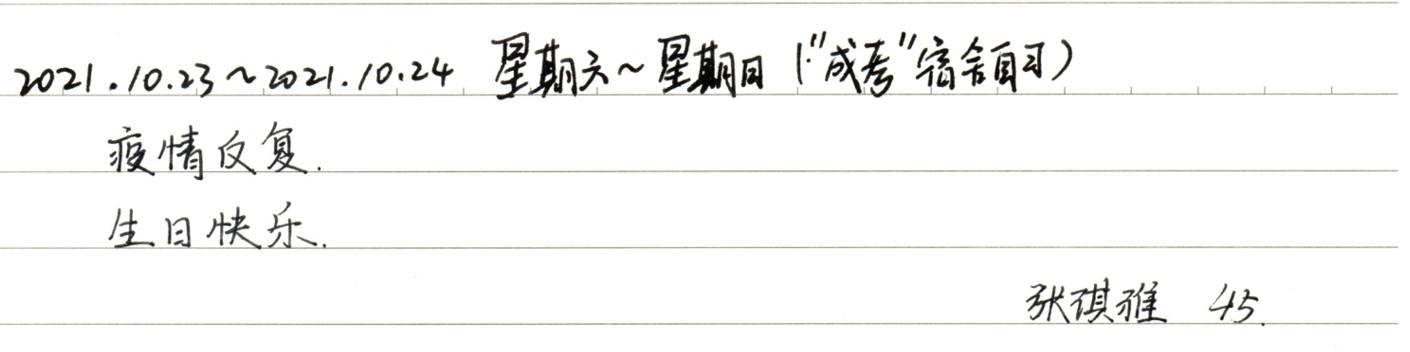 2021.10.23~2021.10.24 星期六~星期日("成考"宿舍自习)
疫情反复.
生日快乐.
张琪雅 45.